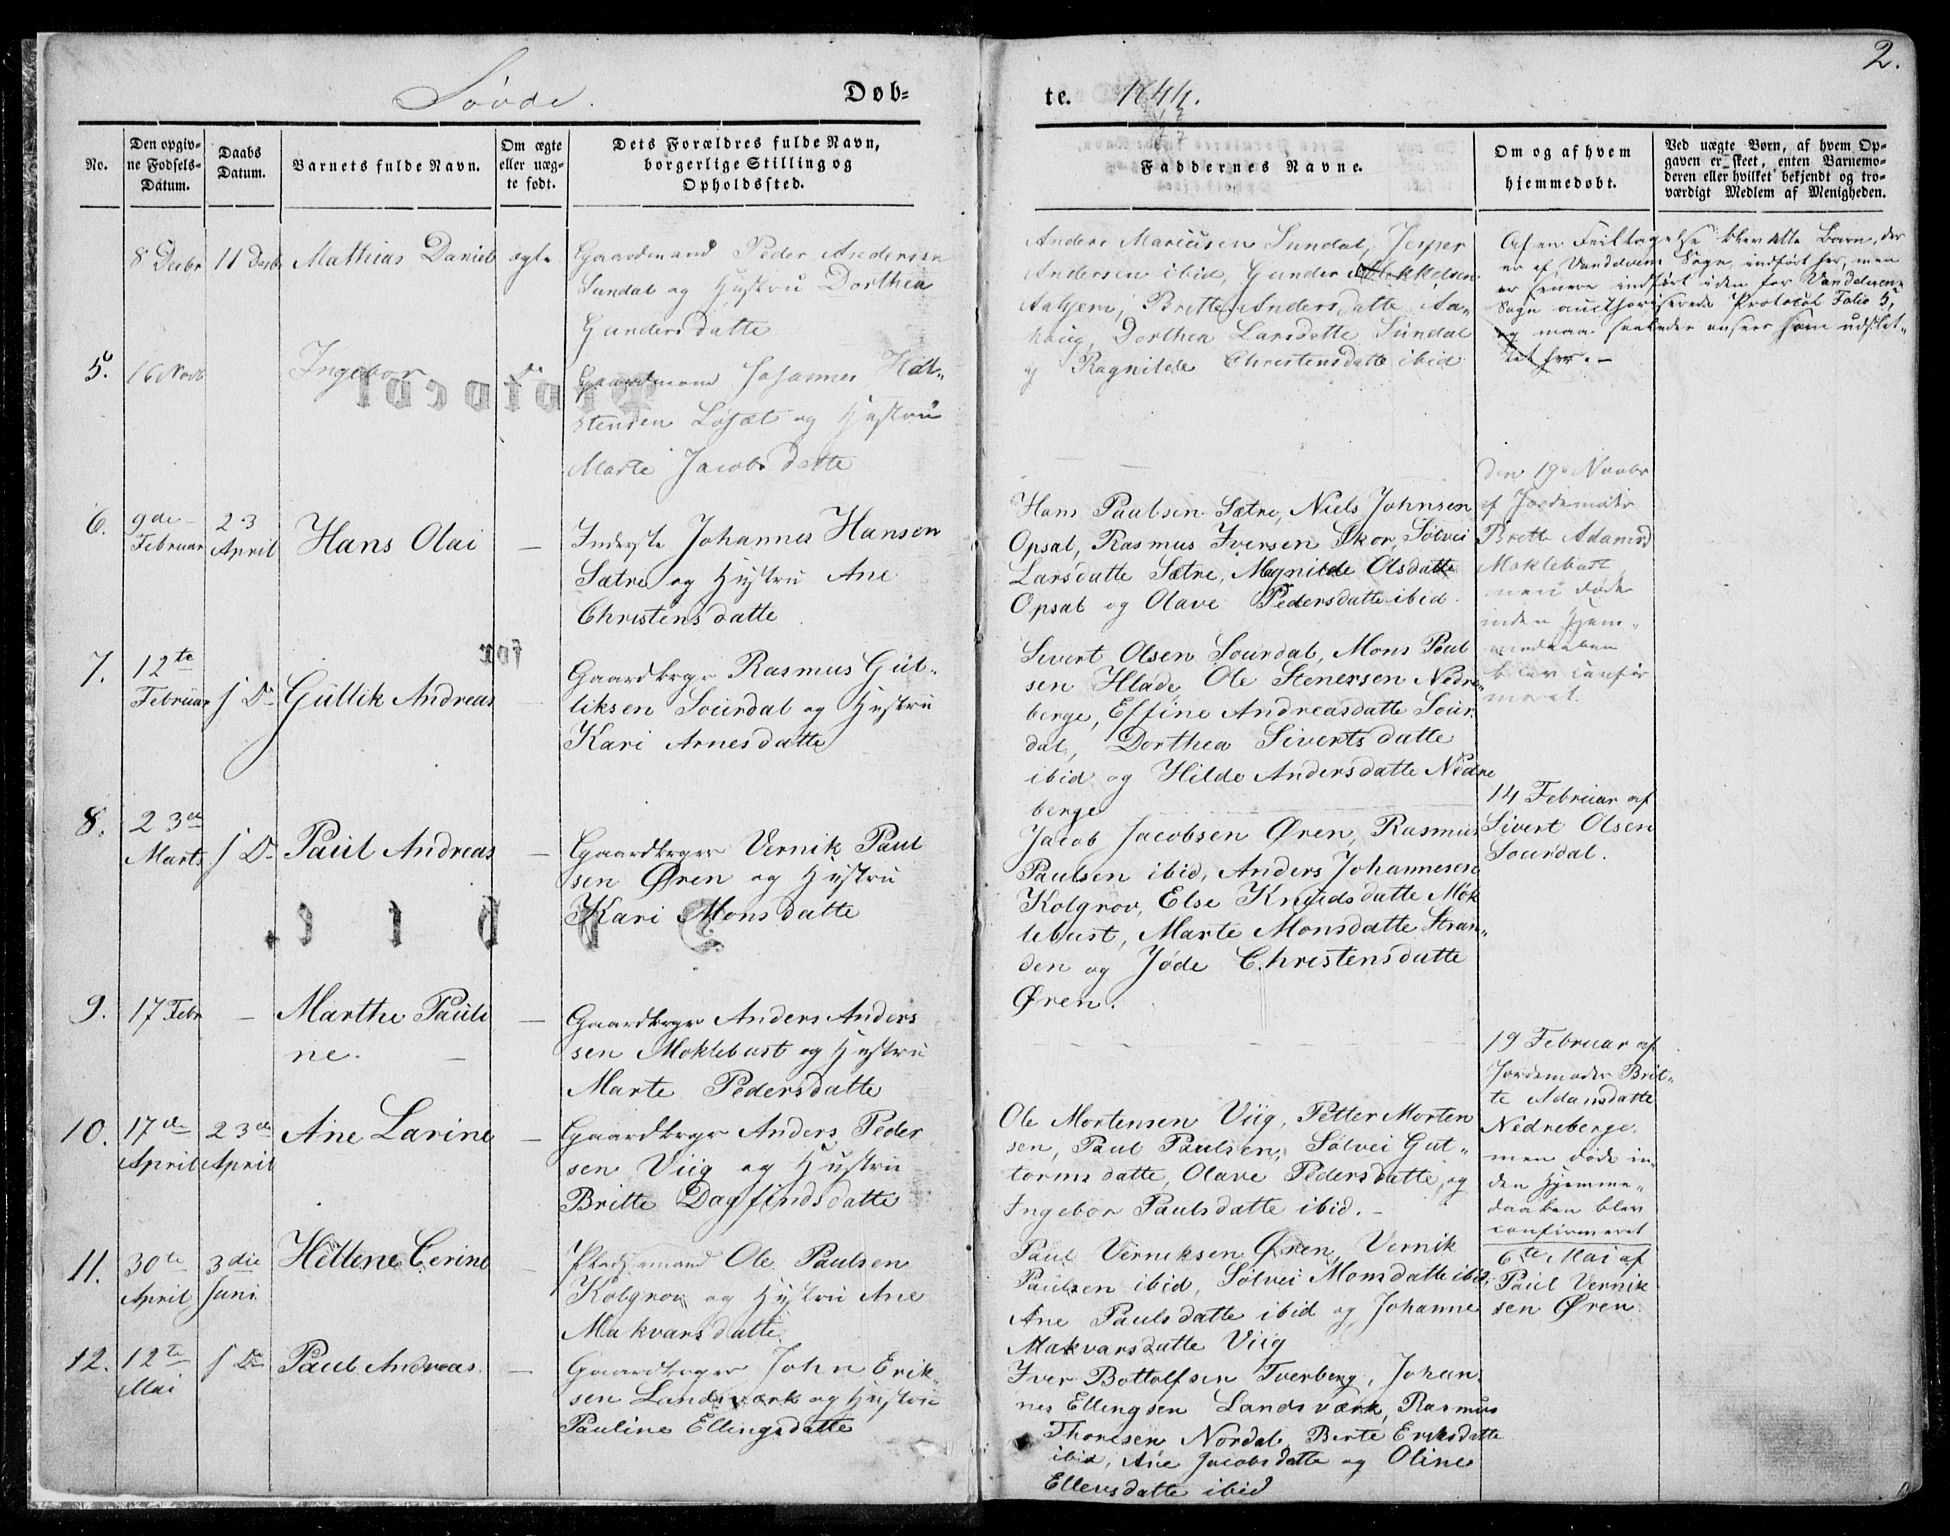 2.
Søvde. Døb-
te. 1844.
No.
Den opgiv-
ne Fødsels-
Datum.
Daabs
Datum.
Barnets fulde Navn.
Om ægte
eller uæg-
te født.
Dets Forældres fulde Navn,
borgerlige Stilling og
Opholdssted.
Faddernes Navne.
Om og af hvem
hjemmedøbt.
Ved uægte Børn, af hvem Op-
gaven er skeet, enten Barnemo-
deren eller hvilket bekjendt og tro-
værdigt Medlem af Menigheden.
8 Decbr 11 Decbr Mathias Daniel ægte
Gaardmand Peder Andersen
Sundal og Hustru Dorthea
Gundersdatte
Anders Mariusen Sundal, Jesper
Andersen ibid, Gunder Mikkelsen
Aahjem, Britte Andersdatte Aa-
haug, Dorthea Larsdatte Sundal
og Ragnilde Christensdatte ibid
Af en Feiltagelse blev dette Barn, der
er af Vanddvens Sogn, indført her, men
er senere indført i den for Vanddvens
Sogn aucthoriserede Protocol Folio 5,
og maa saaledes ansees som udslet-
tet her. -
5. 16 Novb Ingebor do
Gaardmand Johannes Hal-
stensen Løset og Hustru
Marte Jacobsdatte
den 19 Novbr
af Jordemoder
Britte Adamsd
Moklebust
men døde
inden Hjem-
medaaben
blev confir
meret.
6. 9de Februar 23 April Hans Olai -
Inderste Johannes Hansen
Sætre og Hustru Ane
Christensdatte
Hans Paulsen Sætre, Niels Johnsen
Opsal, Rasmus Iversen Skor, Sølvei
Larsdatte Sætre, Magnilde Olsdatte
Opsal og Olave Pedersdatte ibid.
7. 12te Februar s D Gullik Andreas -
Gaardbrgr Rasmus Gul-
liksen Sourdal og Hustru
Kari Arnesdatte
Sivert Olsen Sourdal, Mons Paul
sen Hlade, Ole Stenersen Nedre-
berge, Effine Andreasdatte Sour
dal, Dorthea Sivertsdatte
ibid og Hilde Andersdatte Nedre
berge
14 Februar af
Sivert Olsen
Sourdal.
8. 23de Marts s D Paul Andreas -
Gaardbrger Vernik Paul
sen Øren og Hustru
Kari Monsdatte
Jacob Jacobsen Øren, Rasmus
Paulsen ibid, Anders Johannesen
Kolgrov, Else Knudsdatte Mok
lebust, Marte Monsdatte Stran-
den og Jøde Christensdatte
Øren.
9. 17 Febr - Marthe Pauli
ne. -
Gaardbrgr Anders Anders
sen Moklebust og Hustru
Marte Pedersdatte
19 Februar af
Jordemoder Brit-
te Adamsdatte
Nedreberge,
men døde in-
den Hjemme-
daaben blev
confirmeret
10. 17de April 23de April Ane Larine -
Gaardbrgr Anders Peder
sen Viig og Hustru
Britte Dagfindsdatte
Ole Mortensen Viig, Petter Morten
sen, Paul Paulsen, Sølvei Gut-
tormsdatte, Olave Pedersdatte, og
Ingebor Paulsdatte ibid. -
11. 30te April 3die Juni Hellene Cerine -
Pladsemand Ole Paulsen
Kolgrov og Hustru Ane
Makvarsdatte
Paul Verniksen Øren, Vernik
Paulsen ibid, Sølvei Monsdatte ibid,
Ane Paulsdatte ibid og Johanne
Makvarsdatte Viig
6te Mai af
Paul Vernik
sen Øren.
12. 12te Mai s D Paul Andreas. -
Gaardbrger John Erik-
sen Landsværk og Hustru
Pauline Ellingsdatte
Iver Bottolfsen Tverberg, Johan
nes Ellingsen Landsværk, Rasmus
Thoresen Nordal, Berte Eriksdatte
ibid, Ane Jacobsdatte og Oline
Ellensdatte ibid